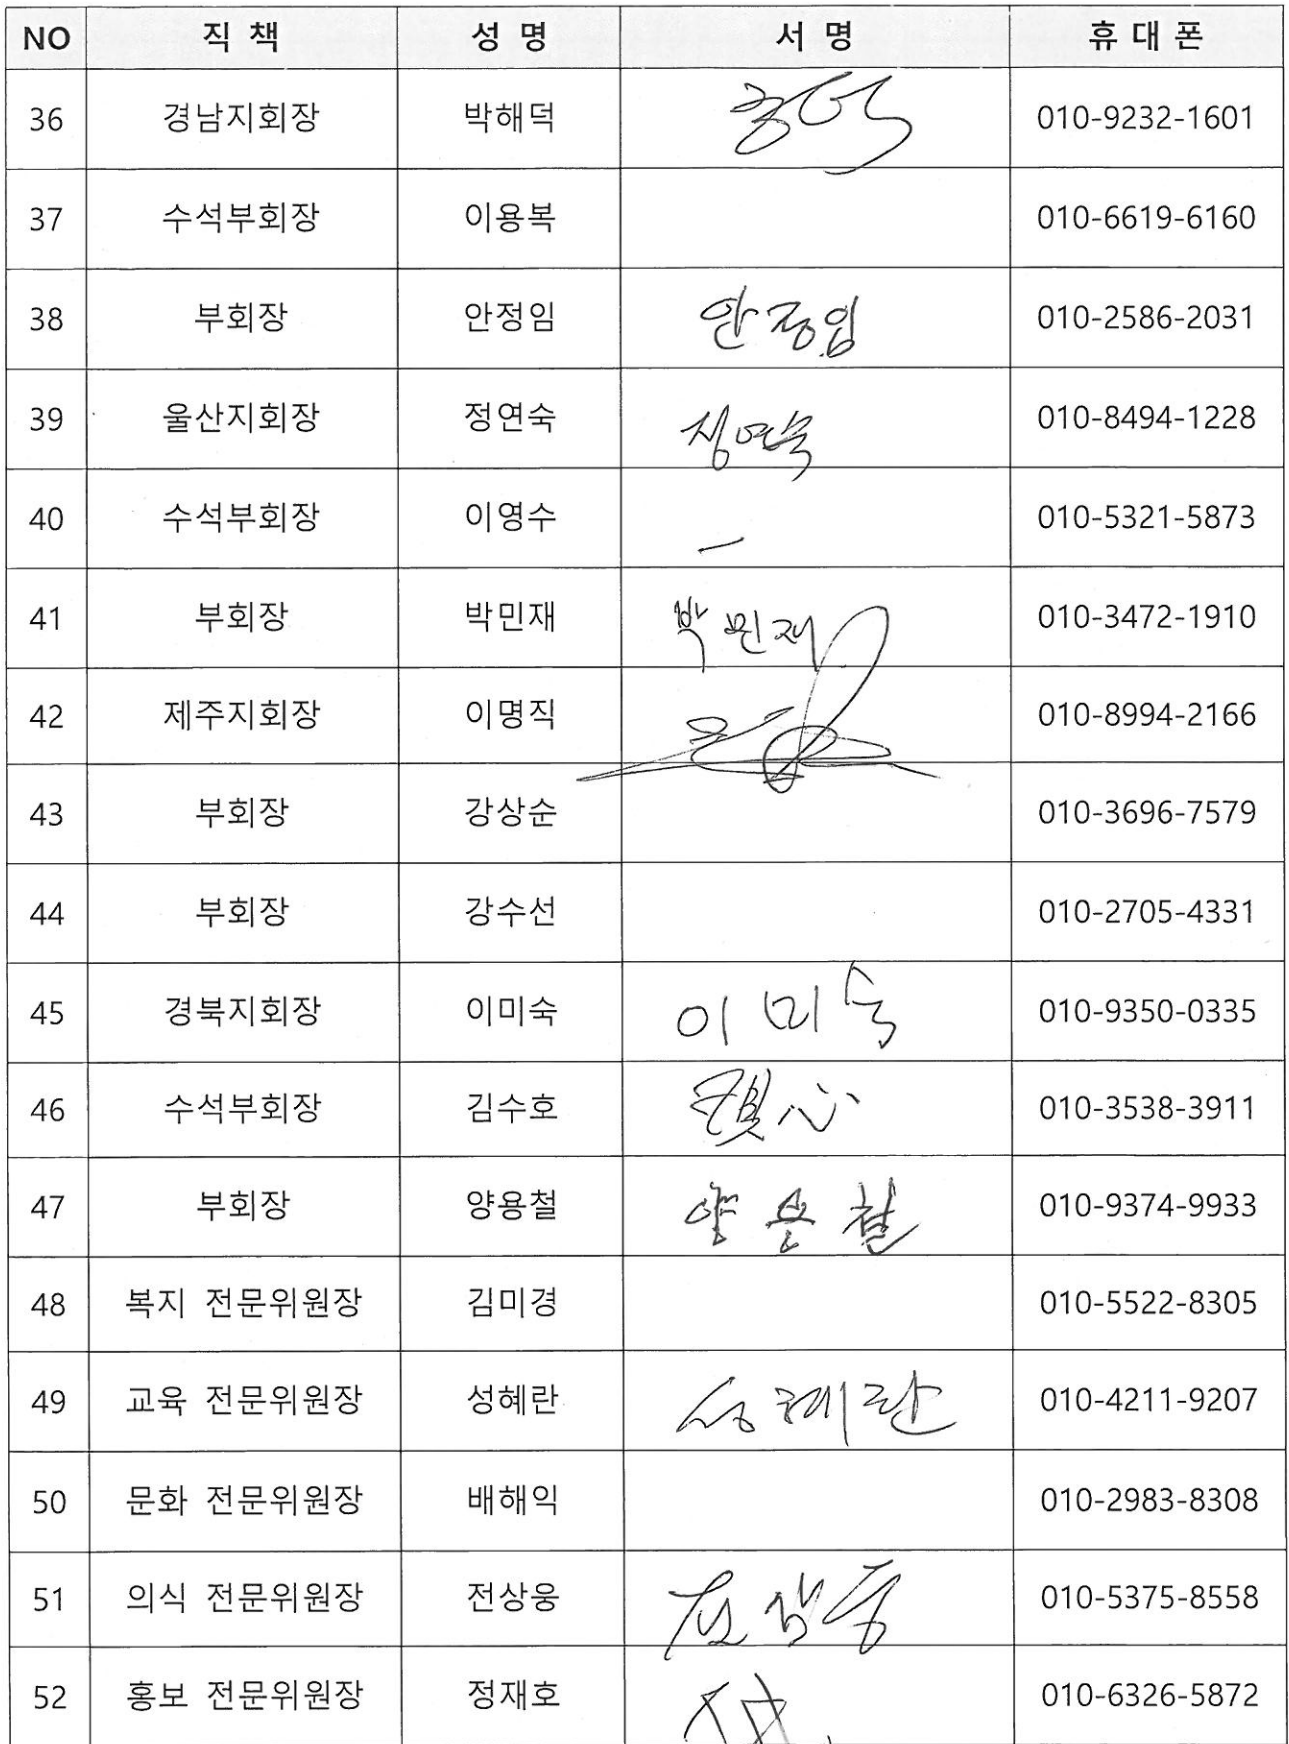 NO 직 책 성 명 서 명 휴 대 폰
36 경남지회장 박해덕 010-9232-1601
37 수석부회장 이용복 010-6619-6160
38 부회장 안정임 안정임 010-2586-2031
39 울산지회장 정연숙 정연숙 010-8494-1228
40 수석부회장 이영수 010-5321-5873
41 부회장 박민재 박민재 010-3472-1910
42 제주지회장 이명직 010-8994-2166
43 부회장 강상순 010-3696-7579
44 부회장 강수선 010-2705-4331
45 경북지회장 이미숙 이미숙 010-9350-0335
46 수석부회장 김수호 010-3538-3911
47 부회장 양용철 양용철 010-9374-9933
48 복지 전문위원장 김미경 010-5522-8305
49 교육 전문위원장 성혜란 성혜란 010-4211-9207
50 문화 전문위원장 배해익 010-2983-8308
51 의식 전문위원장 전상웅 전상웅 010-5375-8558
52 홍보 전문위원장 정재호 010-6326-5872